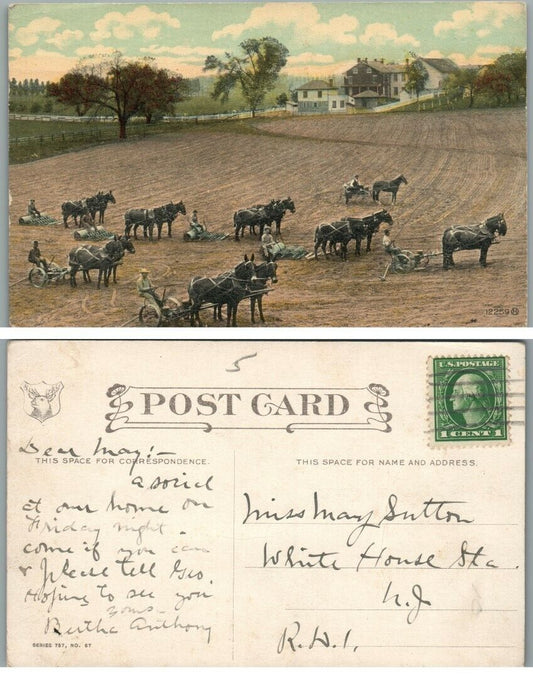 12259 N
5
U.S. POSTAGE
1 CENT 1
POST CARD
THIS SPACE FOR CORRESPONDENCE.
THIS SPACE FOR NAME AND ADDRESS.
Dear May:-
a social
at our home on
Friday night.
come if you can
& please tell Geo.
Hoping to see you
yours-
Bertha Anthony
SERIES 757, NO. 57
Miss May Sutton
White House Sta.
N.J
R.D.1.